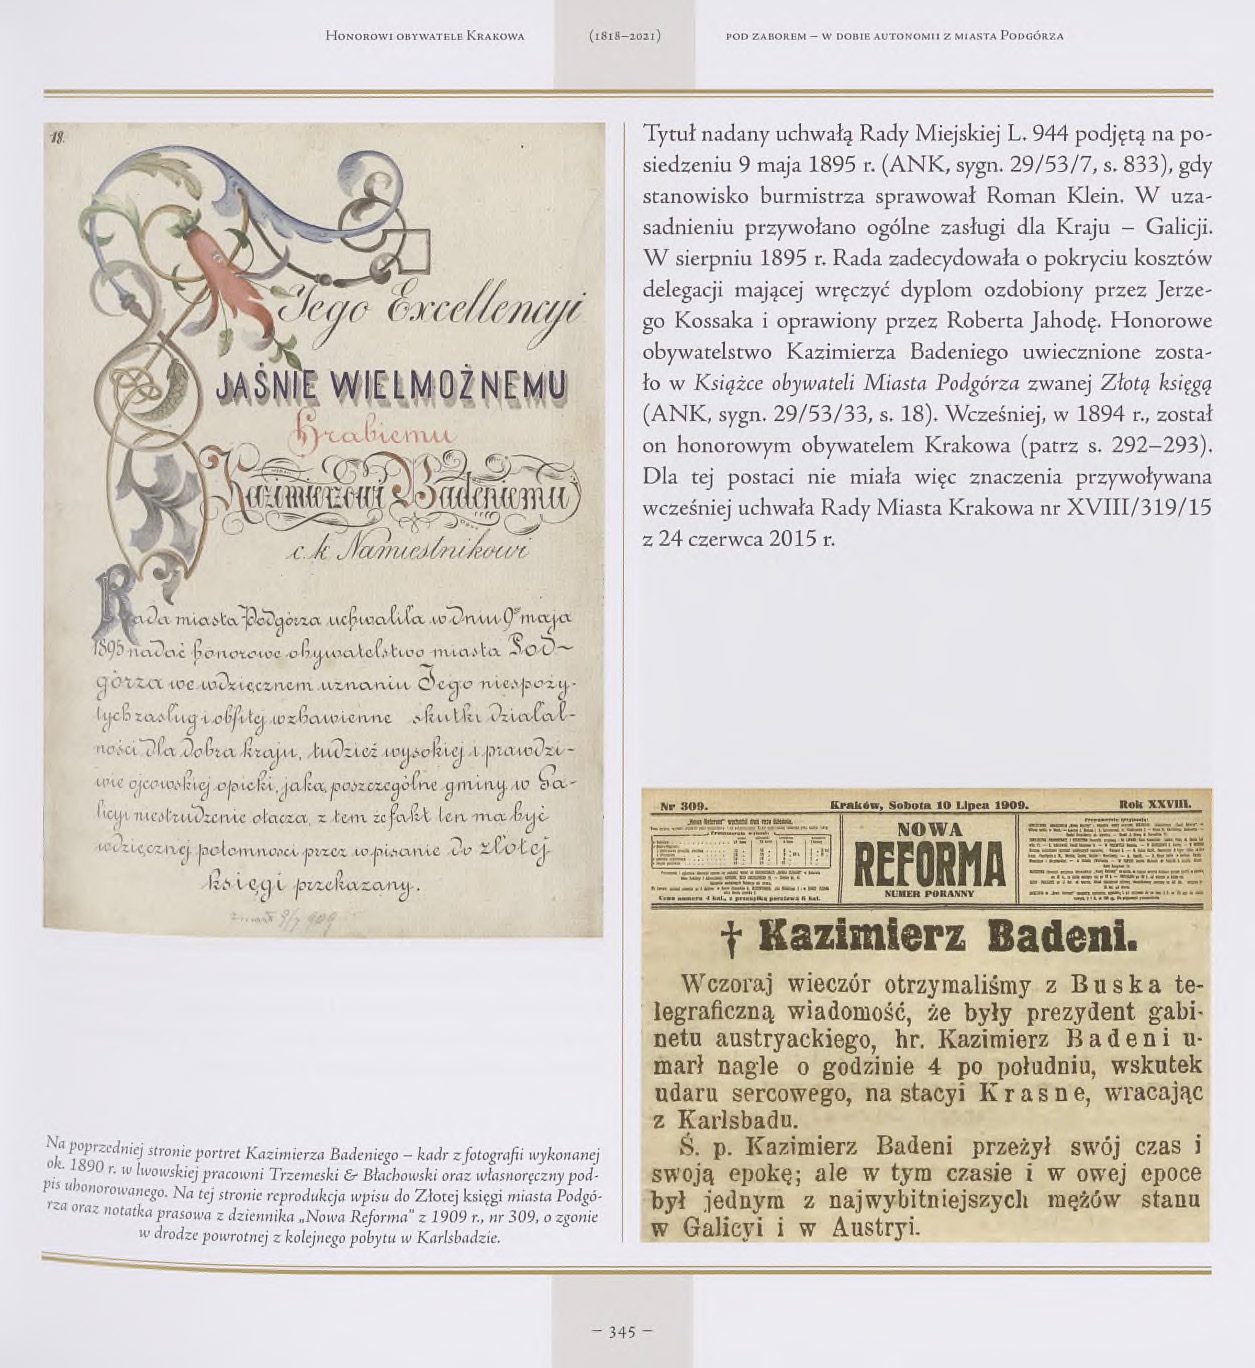 Honorowi obywatele Krakowa (1818–2021) pod zaborem – w dobie autonomii z miasta Podgórza
18.
Jego Excellencyi
JAŚNIE WIELMOŻNEMU
Hrabiemu
Kazimierzowi Badeniemu
c. k. Namiestnikowi
Rada miasta Podgórza uchwaliła w dniu 9go maja
1895 nadać honorowe obywatelstwo miasta Pod-
górza we wdzięcznem uznaniu Jego niespoży-
tych zasług i obfitej w zbawienne skutki działal-
ności dla dobra kraju, tudzież wysokiej i prawdzi-
wie ojcowskiej opieki, jaką poszczególne gminy w Ga-
licyi niestrudzenie otacza, z tem że fakt ten ma być
wdzięcznej potomności przez wpisanie do złotej
księgi przekazany.
zmarł 9/7 909
Na poprzedniej stronie portret Kazimierza Badeniego – kadr z fotografii wykonanej
ok. 1890 r. w lwowskiej pracowni Trzemeski & Błachowski oraz własnoręczny pod-
pis uhonorowanego. Na tej stronie reprodukcja wpisu do Złotej księgi miasta Podgó-
rza oraz notatka prasowa z dziennika „Nowa Reforma" z 1909 r., nr 309, o zgonie
w drodze powrotnej z kolejnego pobytu w Karlsbadzie.
Tytuł nadany uchwałą Rady Miejskiej L. 944 podjętą na po-
siedzeniu 9 maja 1895 r. (ANK, sygn. 29/53/7, s. 833), gdy
stanowisko burmistrza sprawował Roman Klein. W uza-
sadnieniu przywołano ogólne zasługi dla Kraju – Galicji.
W sierpniu 1895 r. Rada zadecydowała o pokryciu kosztów
delegacji mającej wręczyć dyplom ozdobiony przez Jerze-
go Kossaka i oprawiony przez Roberta Jahodę. Honorowe
obywatelstwo Kazimierza Badeniego uwiecznione zosta-
ło w Książce obywateli Miasta Podgórza zwanej Złotą księgą
(ANK, sygn. 29/53/33, s. 18). Wcześniej, w 1894 r., został
on honorowym obywatelem Krakowa (patrz s. 292–293).
Dla tej postaci nie miała więc znaczenia przywoływana
wcześniej uchwała Rady Miasta Krakowa nr XVIII/319/15
z 24 czerwca 2015 r.
Nr 309. Kraków, Sobota 10 Lipca 1909. Rok XXVIII.
NOWA
REFORMA
NUMER PORANNY
Cena numeru 4 hal., z przesyłką pocztową 6 hal.
† Kazimierz Badeni.
Wczoraj wieczór otrzymaliśmy z Buska te-
legraficzną wiadomość, że były prezydent gabi-
netu austryackiego, hr. Kazimierz Badeni u-
marł nagle o godzinie 4 po południu, wskutek
udaru sercowego, na stacyi Krasne, wracając
z Karlsbadu.
Ś. p. Kazimierz Badeni przeżył swój czas i
swoją epokę; ale w tym czasie i w owej epoce
był jednym z najwybitniejszych mężów stanu
w Galicyi i w Austryi.
– 345 –